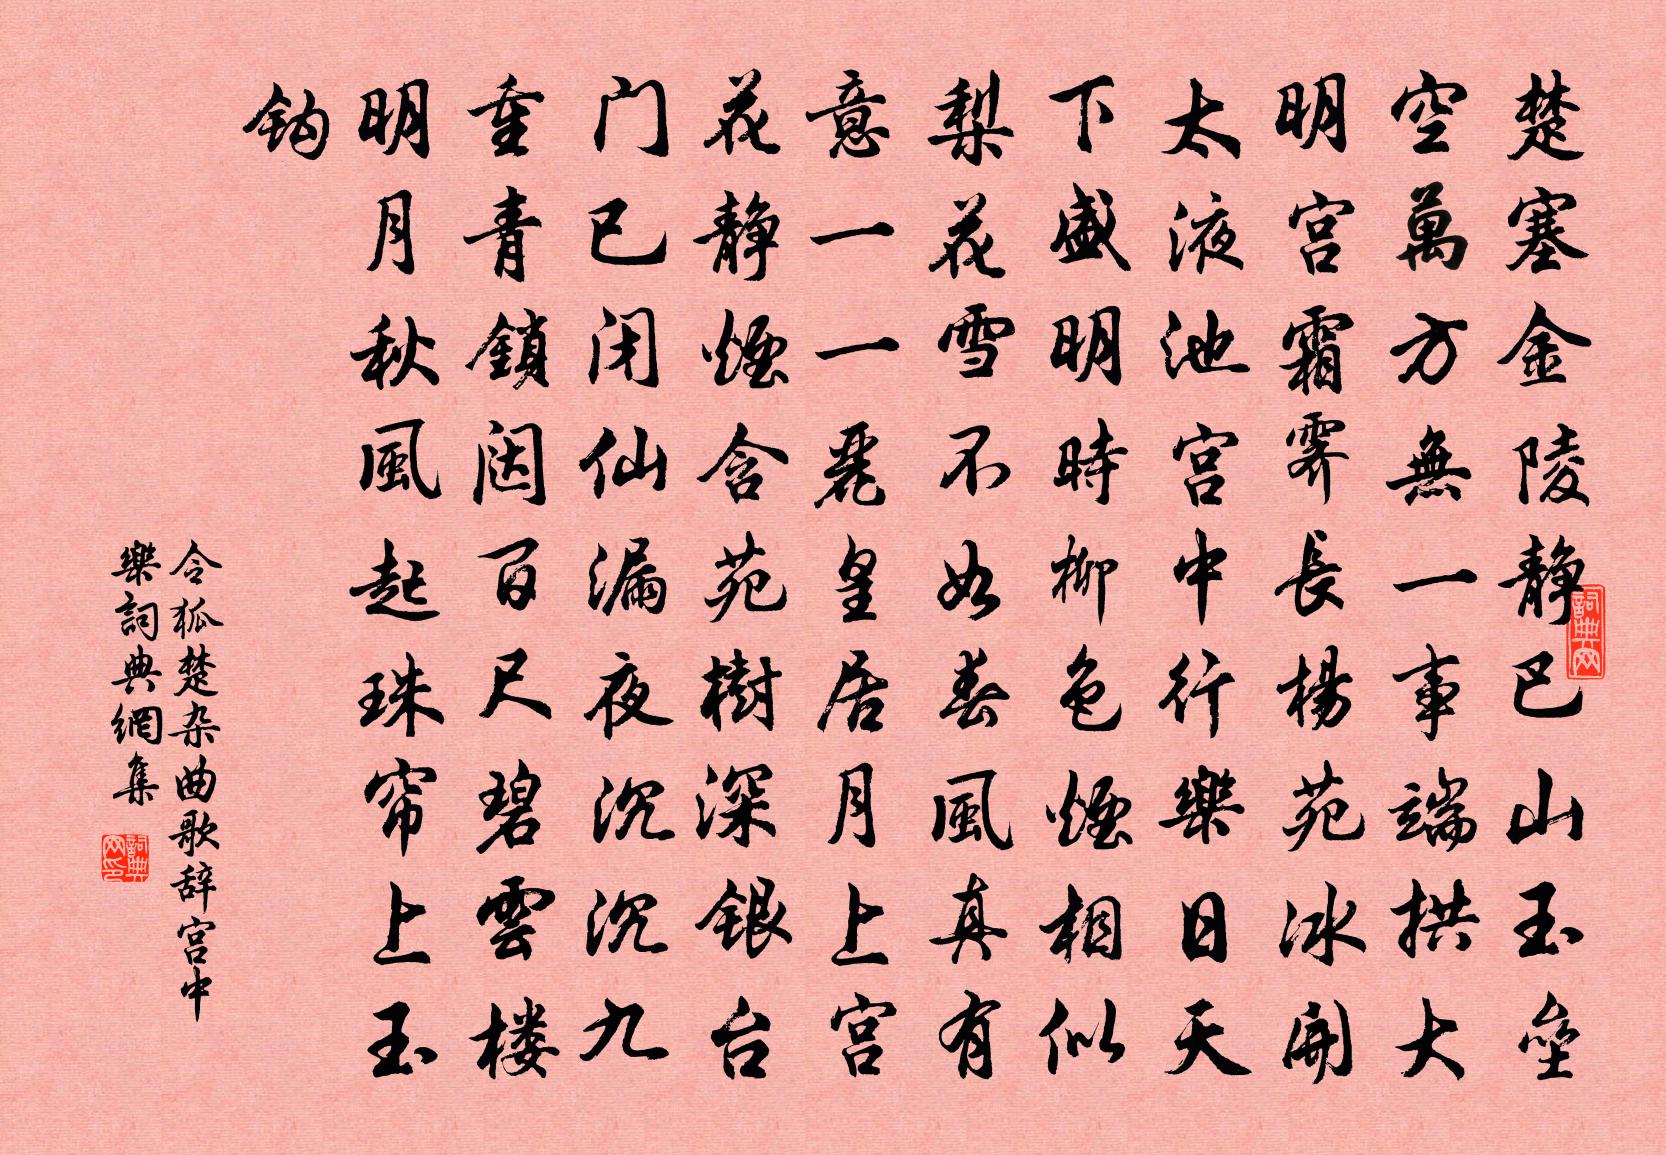 楚塞金陵静巴山玉垒
空萬方無一事端拱大
明宫霜霁長楊苑冰開
太液池宫中行樂日天
下盛明時柳色煙相似
梨花雪不如春風真有
意一一麗皇居月上宫
花静煙含苑樹深銀台
门已闭仙漏夜沉沉九
重青鎖闼百尺碧雲楼
明月秋風起珠帘上玉
鈎
令狐楚杂曲歌辞宫中
樂詞典網集
詞典网
詞典网印